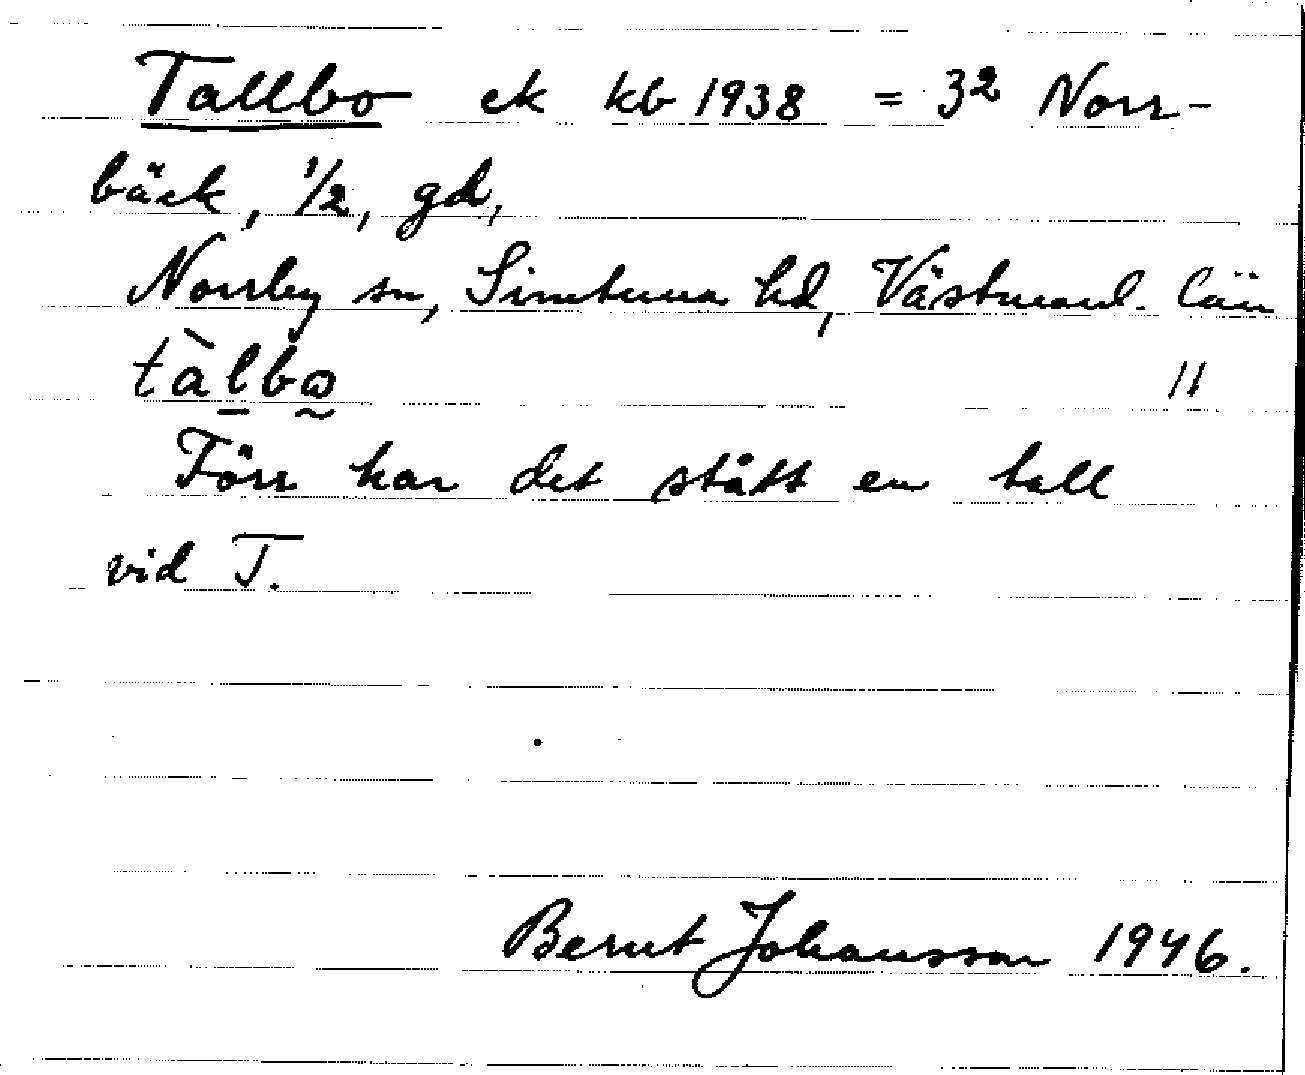 Tallbo ek kb 1938 = 3² Norr-
bäck, 1/2, gd,
Norrby sn, Simtuna hd, Västmanl. län
tàl̠bω̰ 11
Förr har det stått en tall
vid T.
Bernt Johansson 1946.